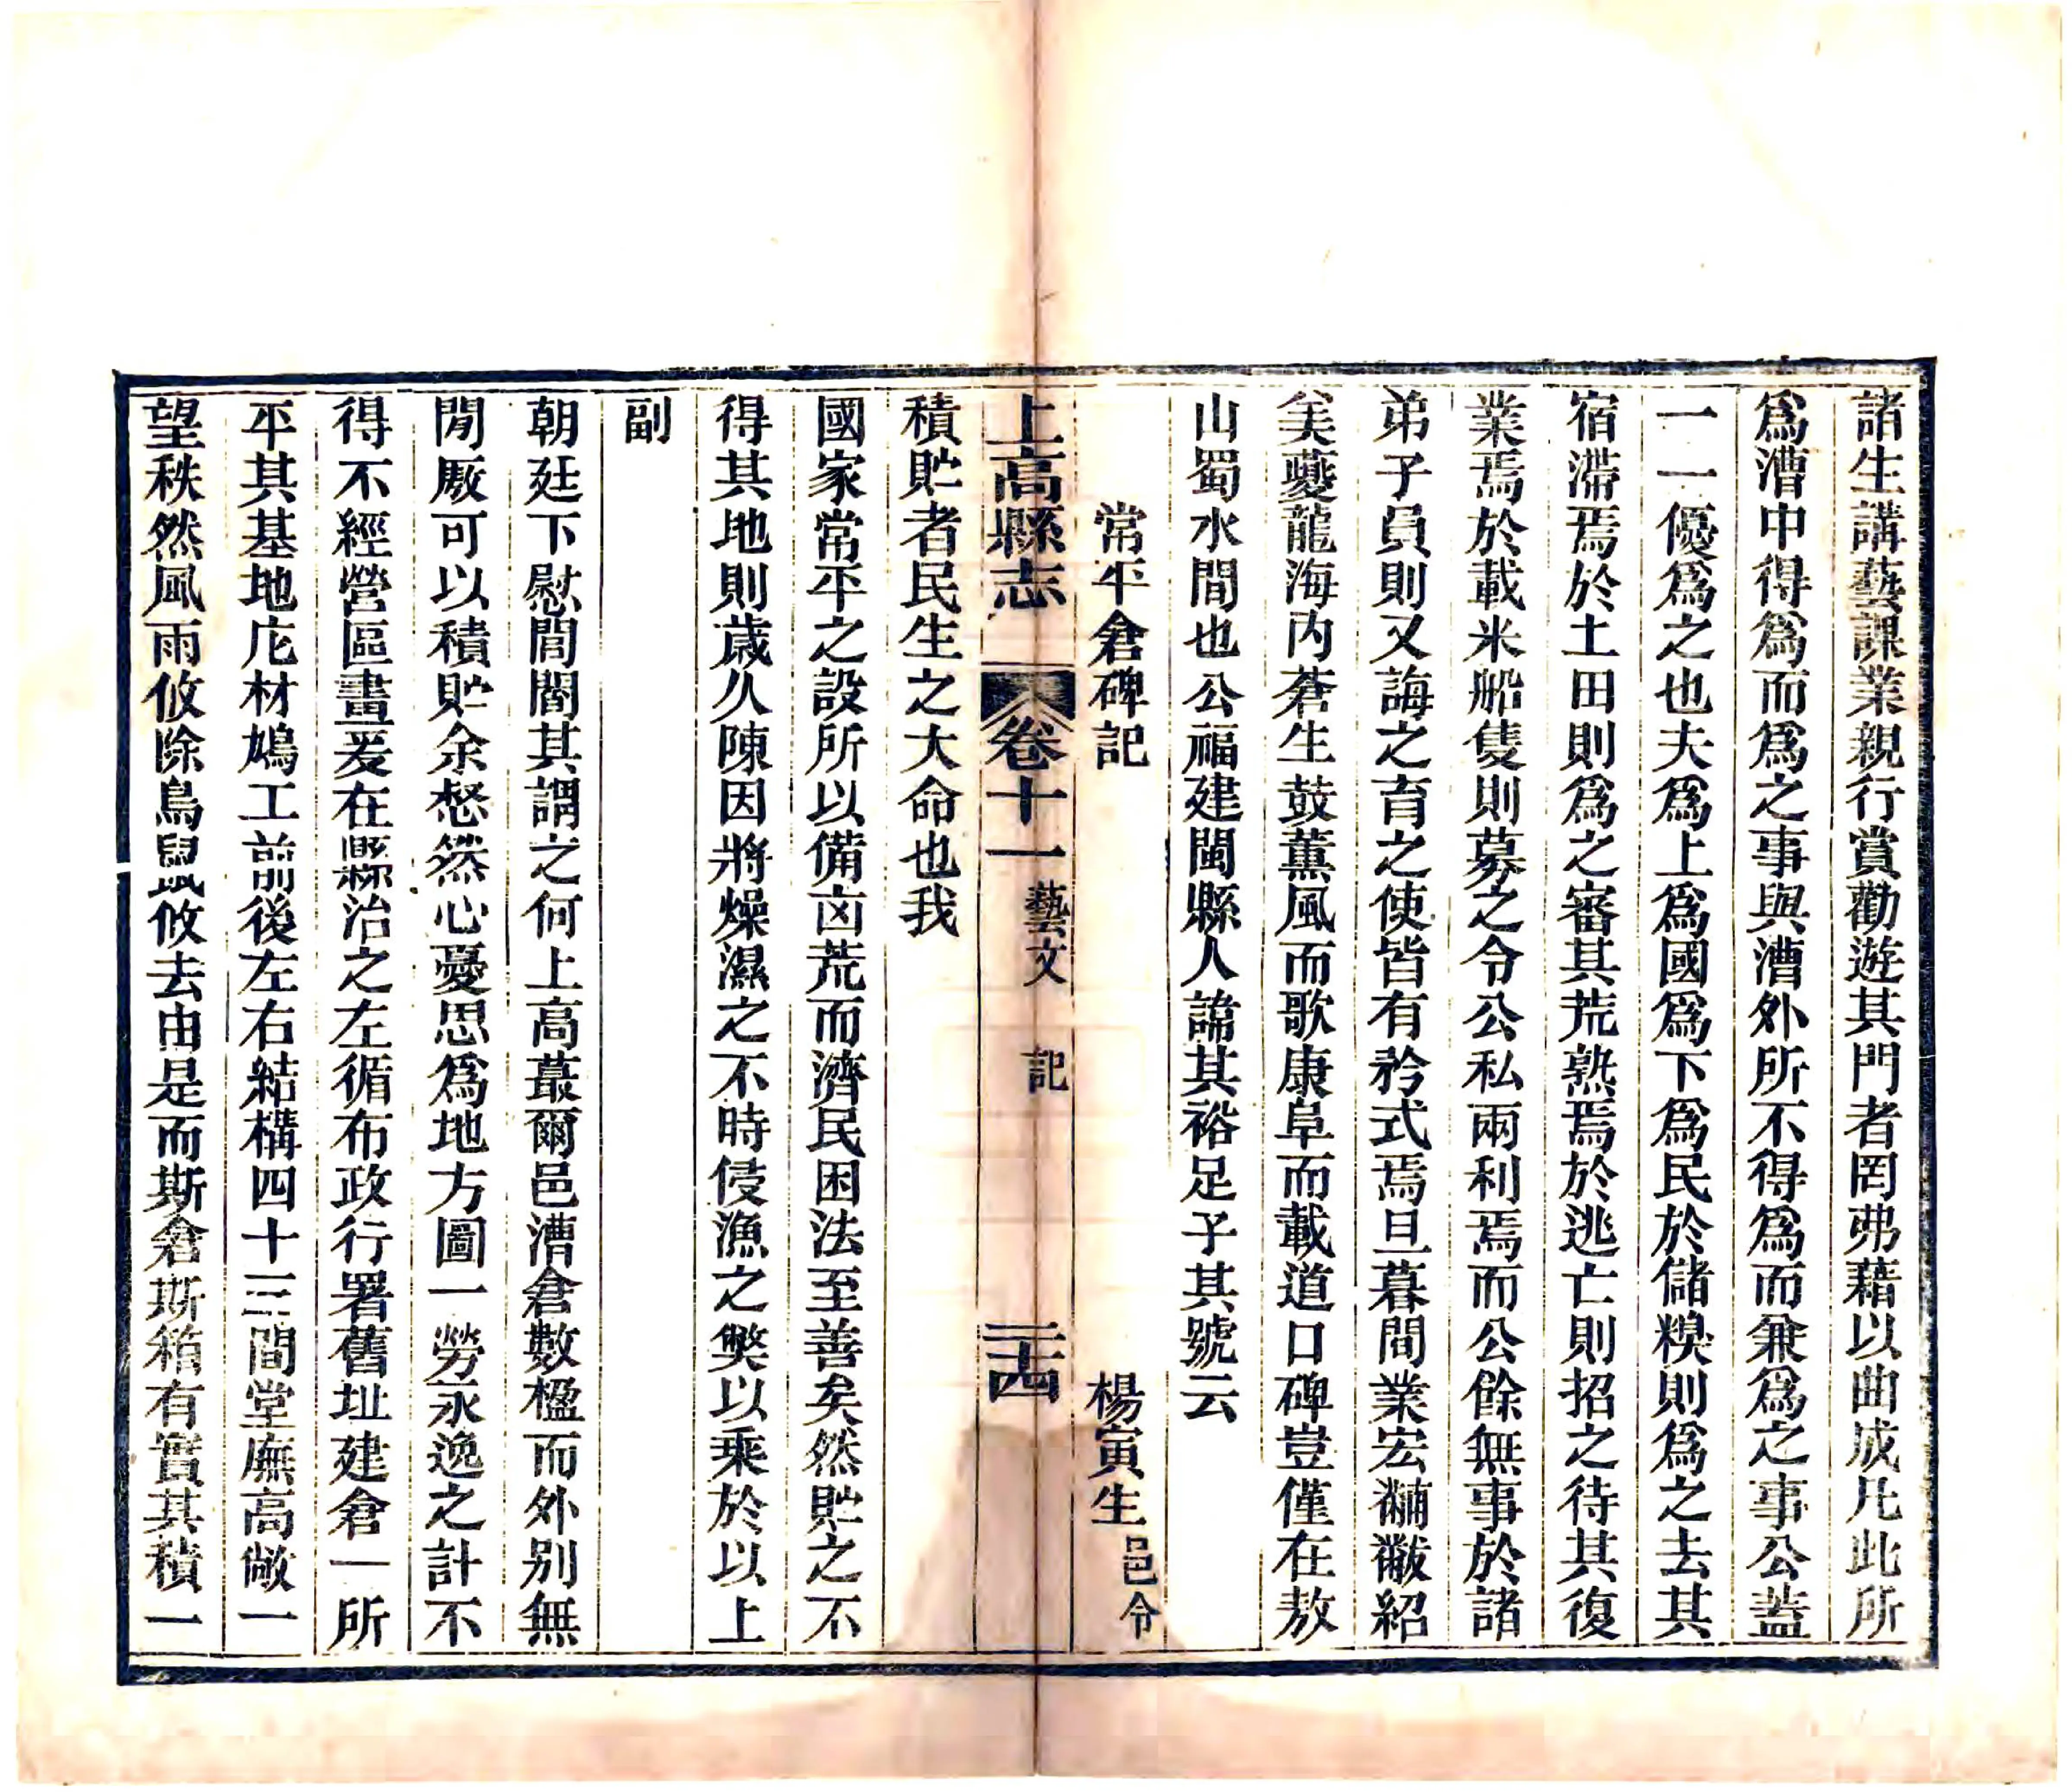 諸生講藝課業親行賞勸遊其門者罔弗藉以曲成凡此所
爲漕中得爲而爲之事與漕外所不得爲而兼爲之事公蓋
一一優爲之也夫爲上爲國爲下爲民於儲糗則爲之去其
宿滯焉於土田則爲之審其荒熟焉於逃亡則招之待其復
業焉於載米船隻則募之令公私兩利焉而公餘無事於諸
弟子員則又誨之育之使皆有矜式焉旦暮間業宏黼黻紹
美夔龍海内蒼生鼓薰風而歌康阜而載道口碑豈僅在敖
山蜀水間也公福建閩縣人諱其裕足子其號云
常平倉碑記 楊寅生邑令
上高縣志 卷十一 藝文 記 二十四
積貯者民生之大命也我
國家常平之設所以備凶荒而濟民困法至善矣然貯之不
得其地則歲久陳因將燥濕之不時侵漁之獘以乘於以上
副
朝廷下慰閭閻其謂之何上高蕞爾邑漕倉數楹而外别無
閒厫可以積貯余惄然心憂思爲地方圖一勞永逸之計不
得不經營區畫爰在縣治之左循布政行署舊址建倉一所
平其基地庀材鳩工前後左右結構四十三間堂廡高敞一
望秩然風雨攸除鳥鼠攸去由是而斯倉斯箱有實其積一